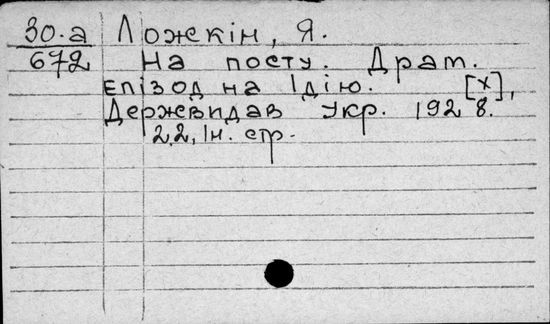 30.а Ложкін, Я.
672 На посту. Драт.
епізод на 1 дію. [X],
Держвидав Укр. 1928.
22, 1н. стр.